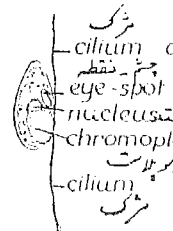 مژگ
cilium
چشم - نقطہ
eye-spot
nucleus
chromopl
پلاست
cilium
مژگ